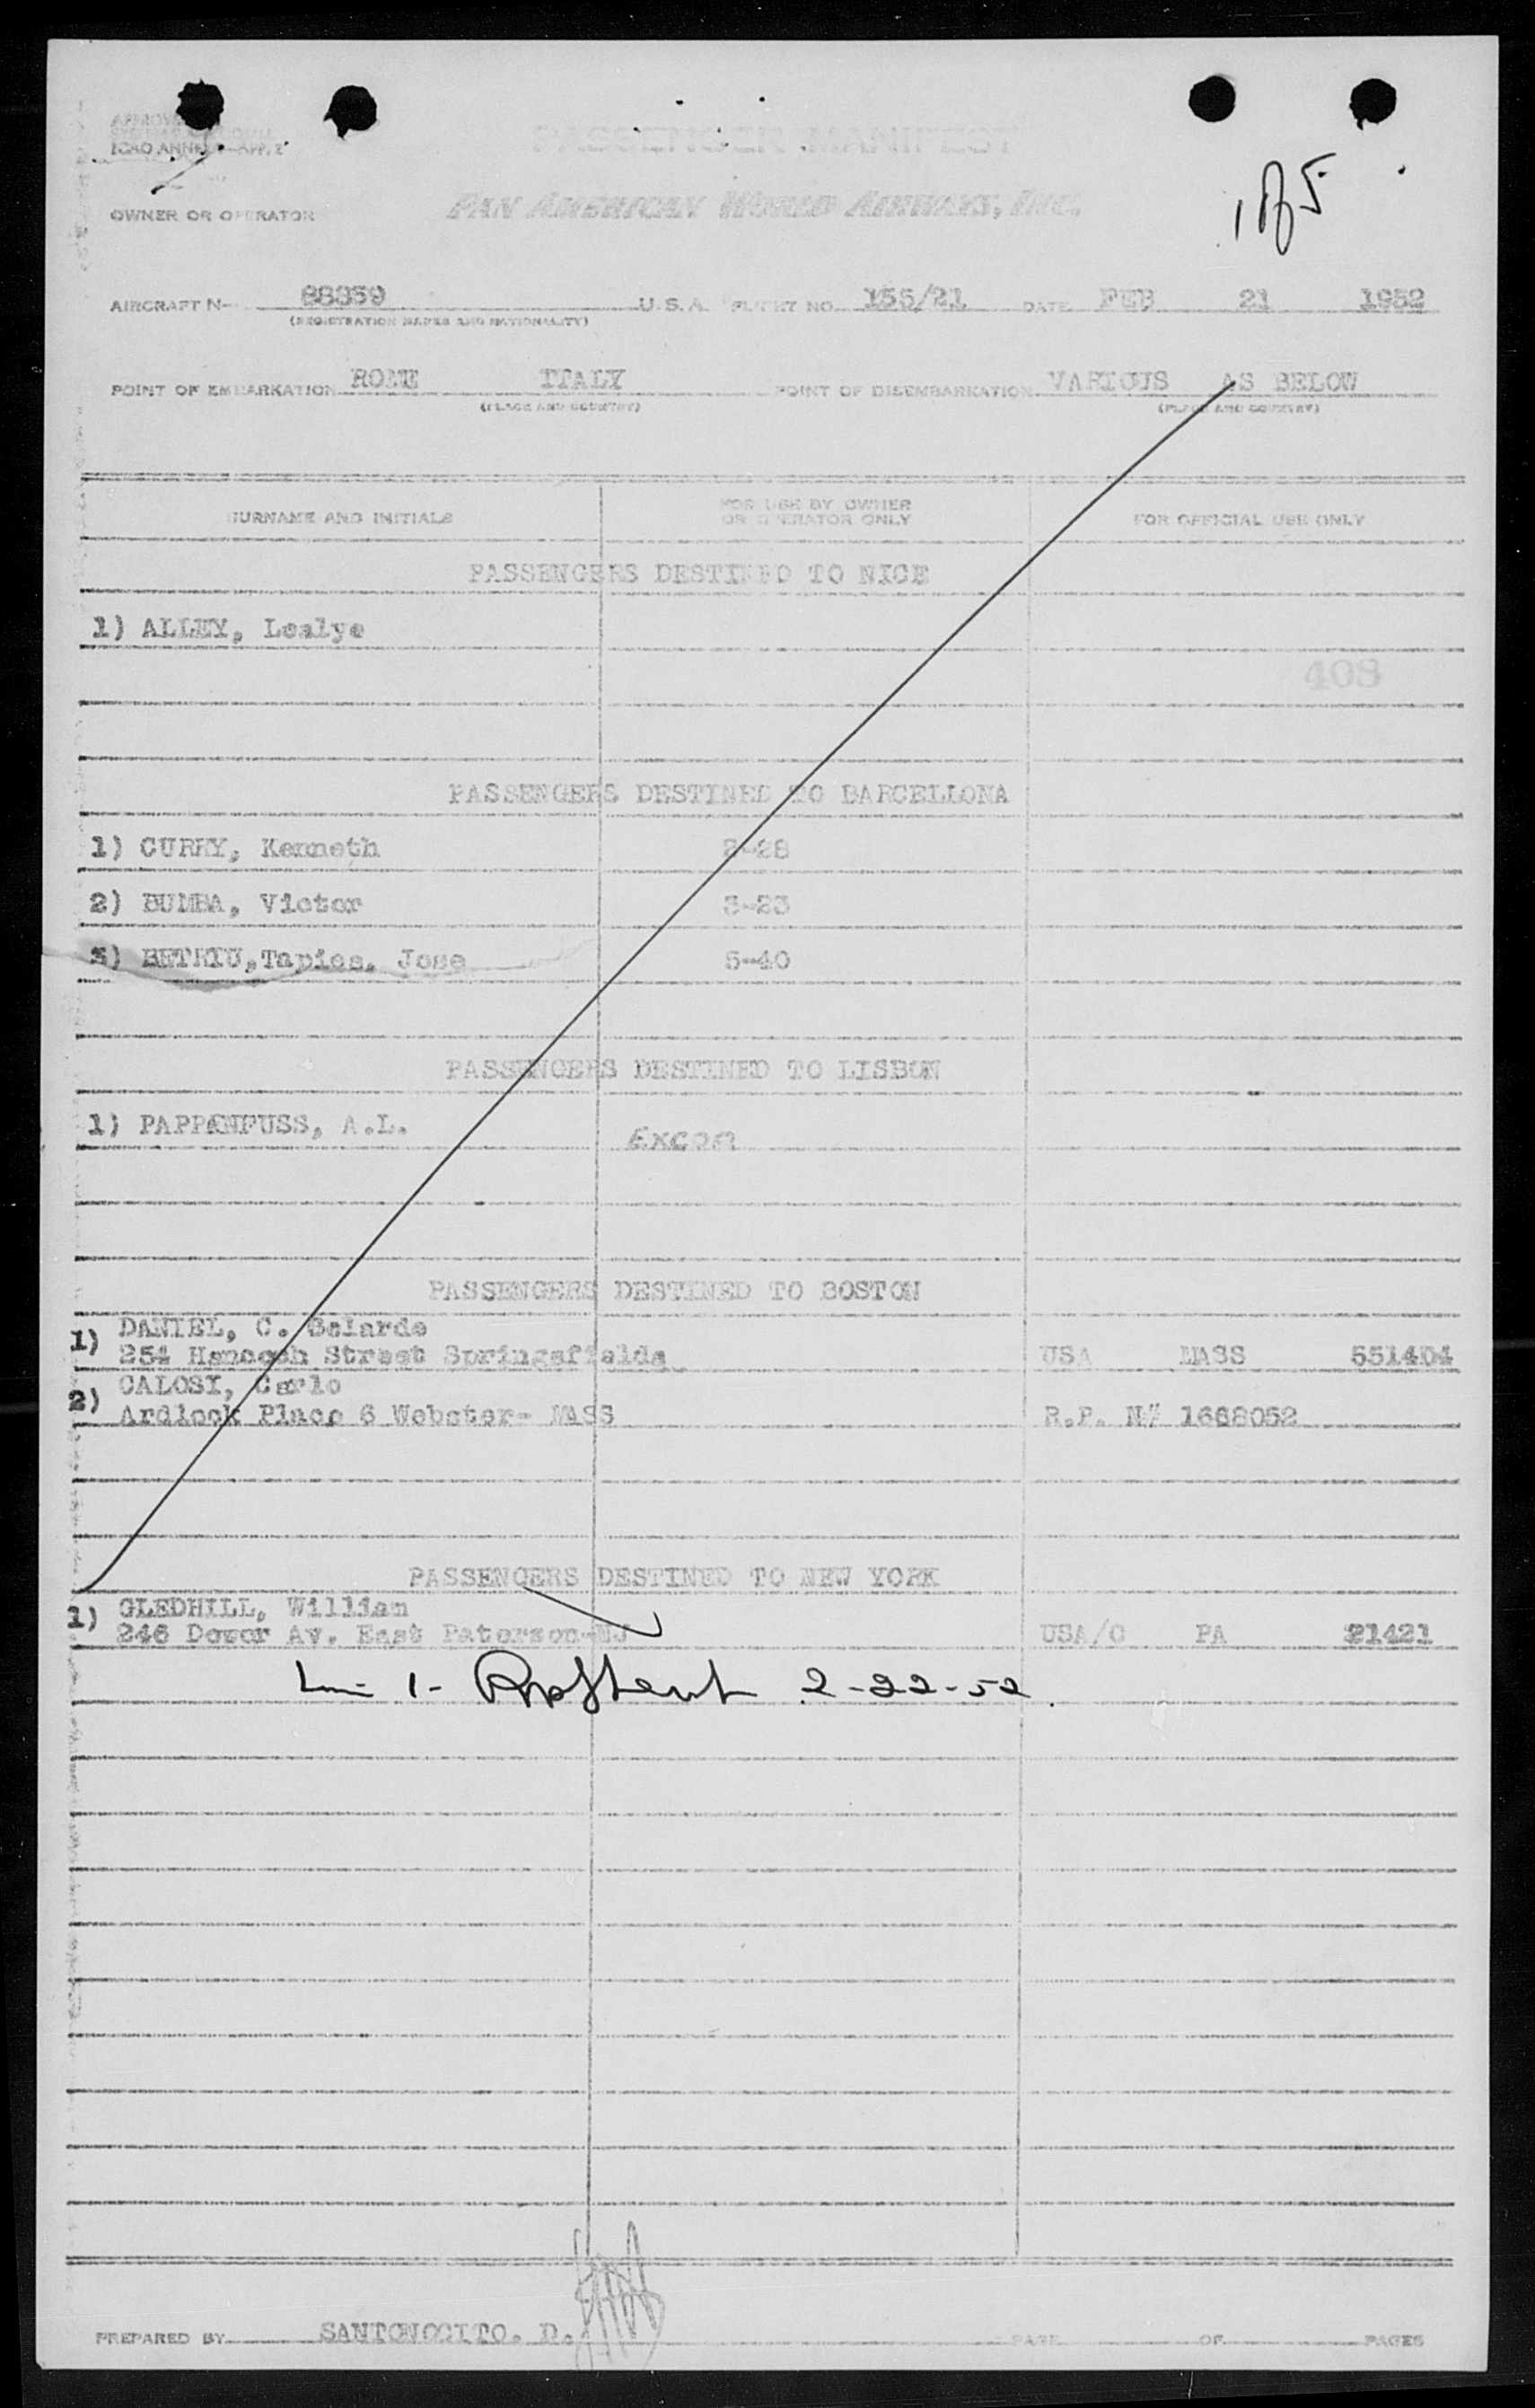 PASSENGER MANIFEST
ICAO ANNEX
OWNER OR OPERATOR PAN AMERICAN WORLD AIRWAYS, INC.
1 of 5
AIRCRAFT N- 88959 U.S.A. FLIGHT NO. 155/21 DATE FEB 21 1952
(REGISTRATION MARKS AND NATIONALITY)
POINT OF EMBARKATION ROME ITALY POINT OF DISEMBARKATION VARIOUS AS BELOW
(PLACE AND COUNTRY) (PLACE AND COUNTRY)
SURNAME AND INITIALS FOR USE BY OWNER OR OPERATOR ONLY FOR OFFICIAL USE ONLY
PASSENGERS DESTINED TO NICE
1) ALLEY, Lealye
408
PASSENGERS DESTINED TO BARCELLONA
1) CURRY, Kenneth 2-28
2) BUMBA, Victor 3-23
3) BETRIU, Tapies, Jose 5-40
PASSENGERS DESTINED TO LISBON
1) PAPPANFUSS, A.L.
PASSENGERS DESTINED TO BOSTON
1) DANIEL, C. Belardo
254 Hancoch Street Springsffields USA MASS 551404
2) CALOSI, Carlo
Ardlock Place 6 Webster- MASS R.P. N# 1688052
PASSENGERS DESTINED TO NEW YORK
1) GLEDHILL, William
246 Dower Av. East Paterson-NJ USA/C PA 21421
1- 2-22-52.
PREPARED BY SANTONOCITO. D. PAGE OF PAGES